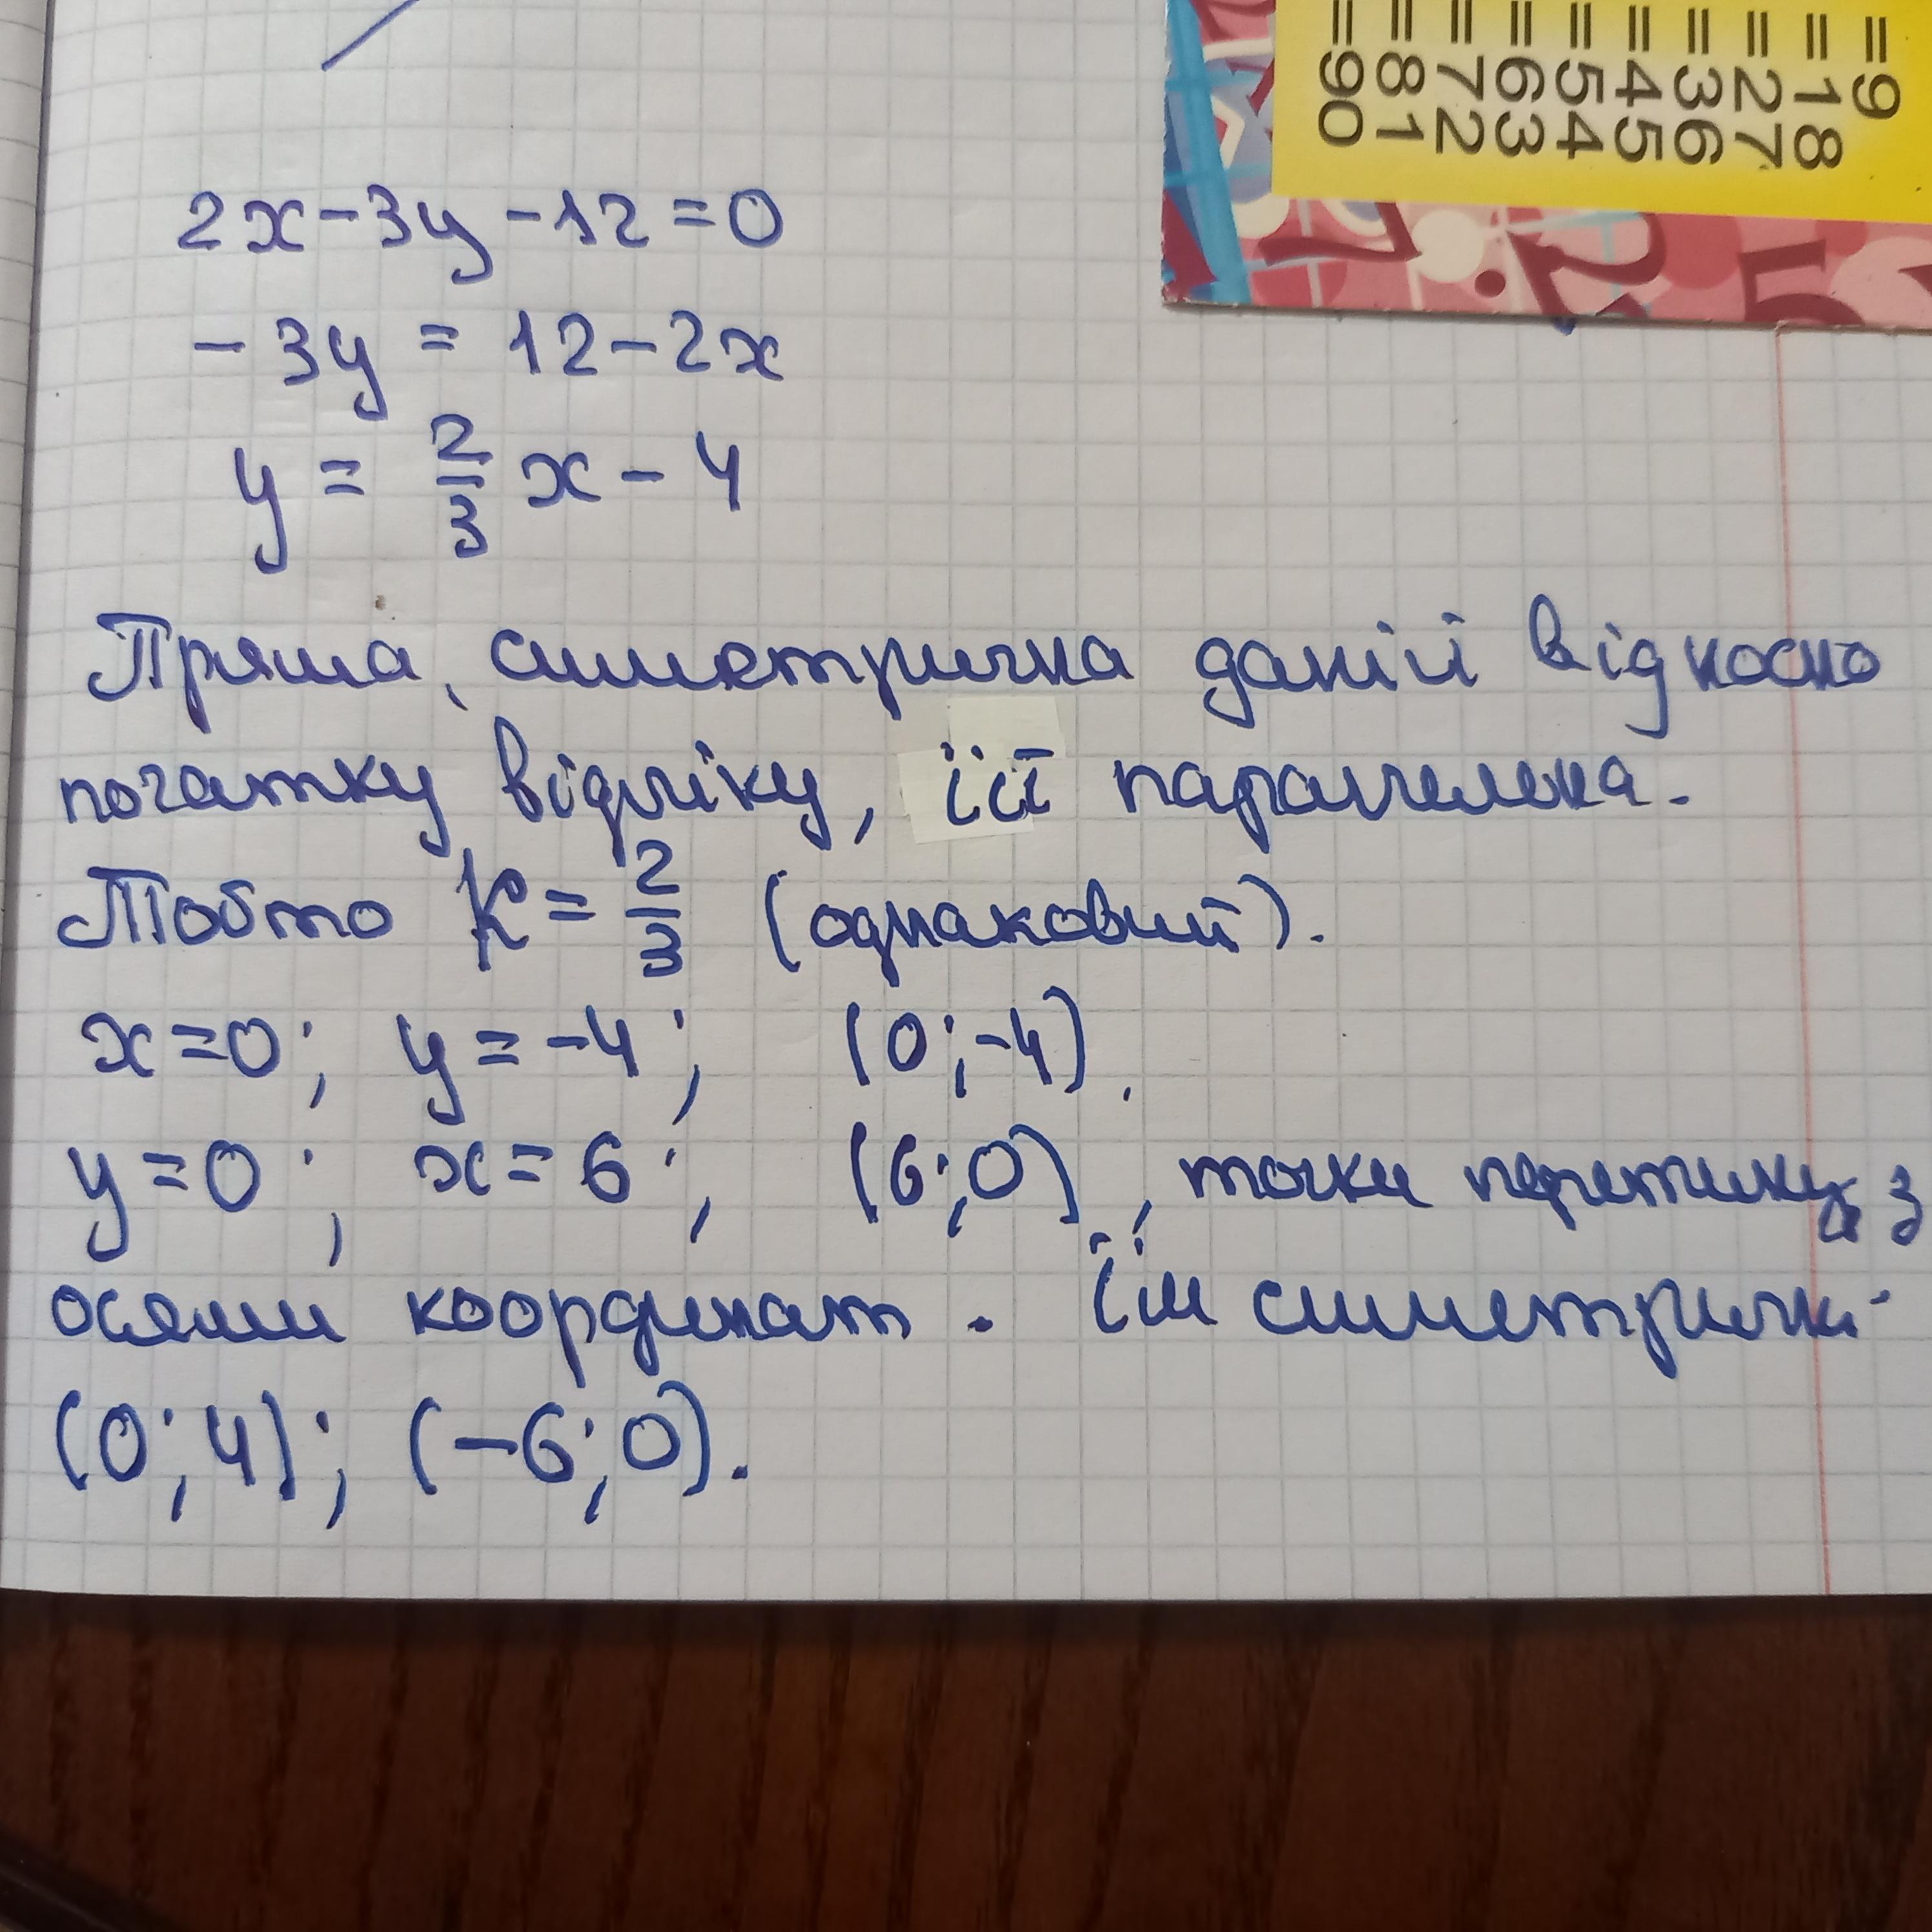 =9
=18
=27
=36
=45
=54
=63
=72
=81
=90
7.25
2x-3y-12=0
-3y = 12-2x
y = 2/3 x - 4
Пряма, симетрична даній відносно
початку відліку, їй паралельна.
Тобто k = 2/3 (однаковий).
x=0; y=-4; (0;-4),
y=0; x=6; (6;0), точки перетину з
осями координат. Їм симетричні
(0;4); (-6;0).